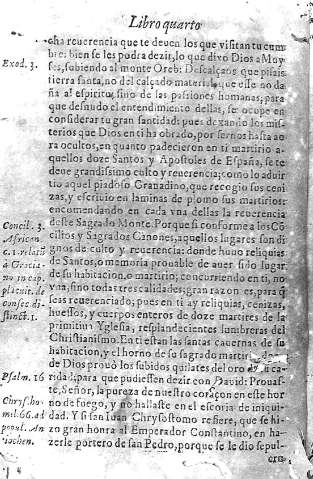 Libro quarto
cha reuerencia que te deuen los que visitan tu cum
bre: bien se les podra dezir, lo que dixo Dios a Moy
Exod. 3.
ses, subiendo al monte Oreb: Descalçaos que pisais
tierra santa, no del calçado material, que esse no da
ña al espiritu, sino de las passiones humanas; para
que desnudo el entendimiento dellas, se ocupe en
considerar tu gran santidad: pues dexando los mis-
terios que Dios en ti ha obrado, por sernos hasta ao
ra ocultos, en quanto padecieron en ti martirio a-
quellos doze Santos y Apostoles de España, se te
deue grandissimo culto y reuerencia; como lo aduir
tio aquel piadoso Granadino, que recogio sus ceni
zas, y escriuio en laminas de plomo sus martirios:
encomendando en cada vna dellas la reuerencia
deste Sagrado Monte. Porque si conforme a los Cõ
Concil. 3.
cilios y Sagrados Canones, aquellos lugares son di
African.
gnos de culto y reuerencia: donde huuo reliquias
c. 1. relat.
de Santos, o memoria prouable de auer sido lugar
à Gratia-
de su habitacion, o martirio; concurriendo en ti, no
no in cap.
vna, sino todas tres calidades; gran razon es, para q̃
placuit. de
seas reuerenciado; pues en ti ay reliquias, cenizas,
consec. di-
huessos, y cuerpos enteros de doze martires de la
stinct. 1.
primitiua Yglesia, resplandecientes lumbreras del
Christianismo. En ti estan las santas cauernas de su
habitacion, y el horno de su sagrado martirio,
de Dios prouò los subidos quilates del oro ca
Psalm. 16
ridad; para que pudiessen dezir con Dauid: Prouas-
te, Señor, la pureza de nuestro coraçon en este hor
no de fuego, y no hallaste en el escoria de iniqui-
Chrys. ho
mil. 66. ad
dad. Y si san Iuan Chrysostomo refiere, que se hi-
popul. An
zo gran honra al Emperador Constantino, en ha-
tiochen.
zerle portero de san Pedro, porque se le dio sepul-
cro